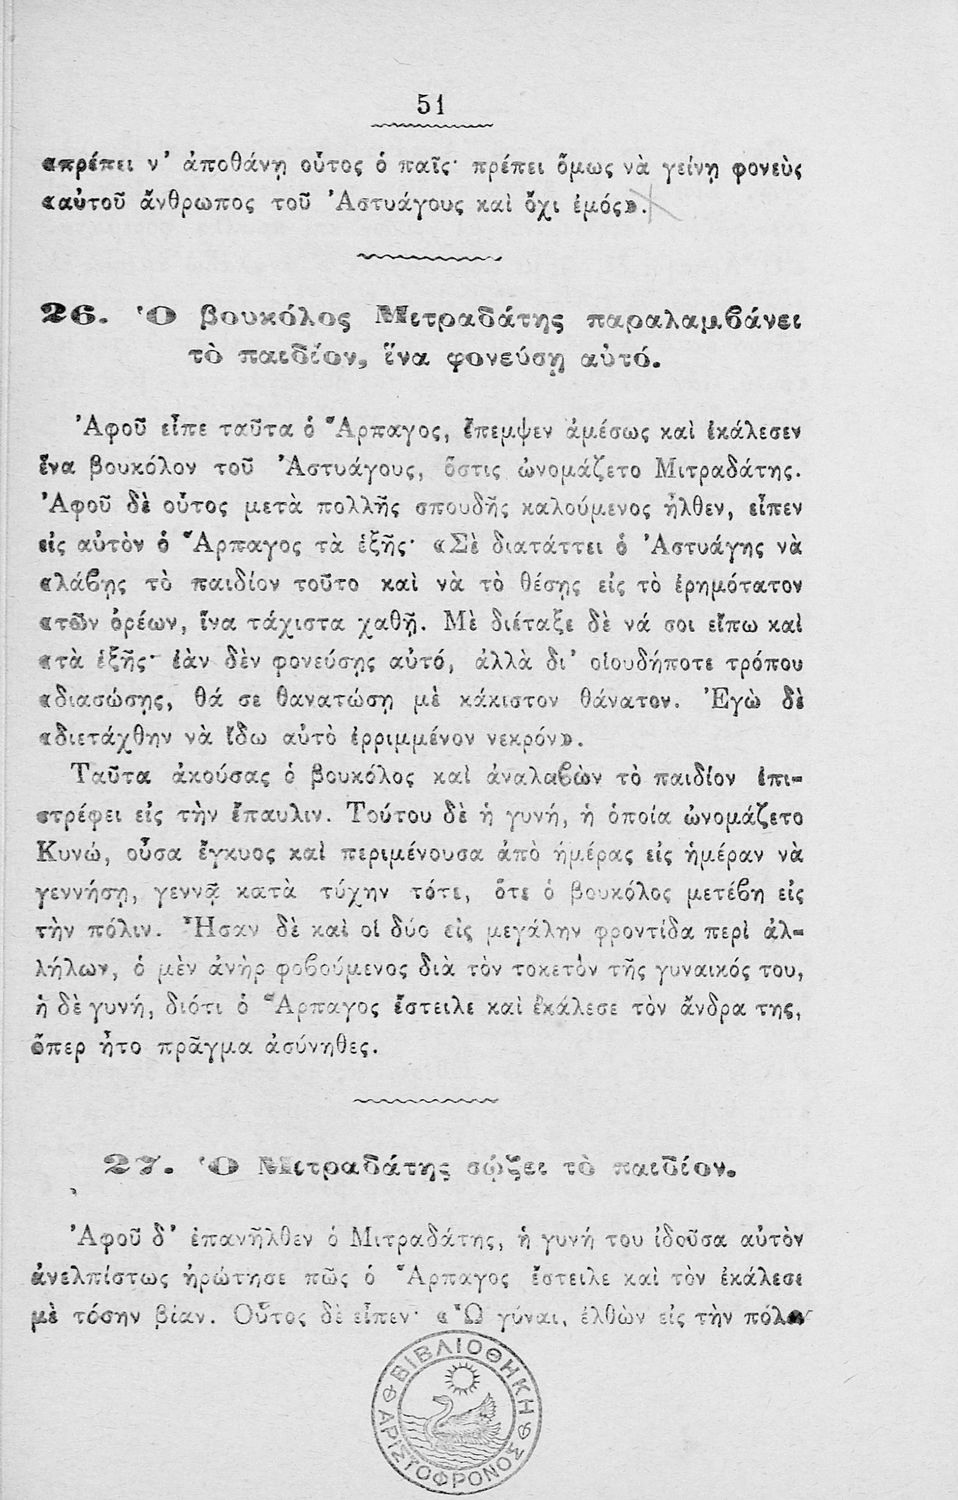 51
«πρέπει ν' ἀποθάνῃ οὗτος ὁ παῖς· πρέπει ὅμως νὰ γείνῃ φονεὺς
«αὐτοῦ ἄνθρωπος τοῦ Ἀστυάγους καὶ ὄχι ἐμός».
26. Ὁ βουκόλος Μιτραδάτης παραλαμβάνει
τὸ παιδίον, ἵνα φονεύσῃ αὐτό.
Ἀφοῦ εἶπε ταῦτα ὁ Ἅρπαγος, ἔπεμψεν ἀμέσως καὶ ἐκάλεσεν
ἕνα βουκόλον τοῦ Ἀστυάγους, ὅστις ὠνομάζετο Μιτραδάτης.
Ἀφοῦ δὲ οὗτος μετὰ πολλῆς σπουδῆς καλούμενος ἦλθεν, εἶπεν
εἰς αὐτὸν ὁ Ἅρπαγος τὰ ἑξῆς· «Σὲ διατάττει ὁ Ἀστυάγης νὰ
«λάβῃς τὸ παιδίον τοῦτο καὶ νὰ τὸ θέσῃς εἰς τὸ ἐρημότατον
«τῶν ὀρέων, ἵνα τάχιστα χαθῇ. Μὲ διέταξε δὲ νά σοι εἴπω καὶ
«τὰ ἑξῆς· ἐὰν δὲν φονεύσῃς αὐτό, ἀλλὰ δι' οἱουδήποτε τρόπου
«διασώσῃς, θά σε θανατώσῃ μὲ κάκιστον θάνατον. Ἐγὼ δὲ
«διετάχθην νὰ ἴδω αὐτὸ ἐρριμμένον νεκρόν».
Ταῦτα ἀκούσας ὁ βουκόλος καὶ ἀναλαβὼν τὸ παιδίον ἐπι-
στρέφει εἰς τὴν ἔπαυλιν. Τούτου δὲ ἡ γυνή, ἡ ὁποία ὠνομάζετο
Κυνώ, οὖσα ἔγκυος καὶ περιμένουσα ἀπὸ ἡμέρας εἰς ἡμέραν νὰ
γεννήσῃ, γεννᾷ κατὰ τύχην τότε, ὅτε ὁ βουκόλος μετέβη εἰς
τὴν πόλιν. Ἦσαν δὲ καὶ οἱ δύο εἰς μεγάλην φροντίδα περὶ ἀλ-
λήλων, ὁ μὲν ἀνὴρ φοβούμενος διὰ τὸν τοκετὸν τῆς γυναικός του,
ἡ δὲ γυνή, διότι ὁ Ἅρπαγος ἔστειλε καὶ ἐκάλεσε τὸν ἄνδρα της,
ὅπερ ἦτο πρᾶγμα ἀσύνηθες.
27. Ὁ Μιτραδάτης σῴζει τὸ παιδίον.
Ἀφοῦ δ' ἐπανῆλθεν ὁ Μιτραδάτης, ἡ γυνή του ἰδοῦσα αὐτὸν
ἀνελπίστως ἠρώτησε πῶς ὁ Ἅρπαγος ἔστειλε καὶ τὸν ἐκάλεσε
μὲ τόσην βίαν. Οὗτος δὲ εἶπεν· «Ὦ γύναι, ἐλθὼν εἰς τὴν
ΒΙΒΛΙΟΘΗΚΗ
ΑΡΙΣΤΟΦΡΟΝΟΣ